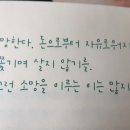 망한다. 돈으로부터 자유로워지
쫓기며 살지 않기를.
런 소망을 이루는 이는 많지